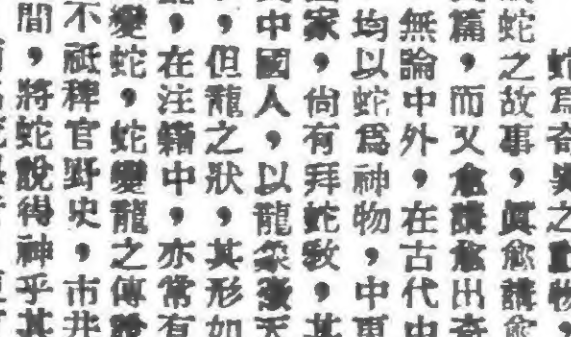 蛇爲奇異之動物,
蛇之故事,眞愈講愈
篇,而又愈講愈出奇
無論中外,在古代中
均以蛇爲神物,中
家,尙有拜蛇敎,其
中國人,以龍象徵天
,但龍之狀,其形如
,在注籍中,亦常有
變蛇,蛇變龍之傳說
不祗稗官野史,市井
間,將蛇說得神乎其